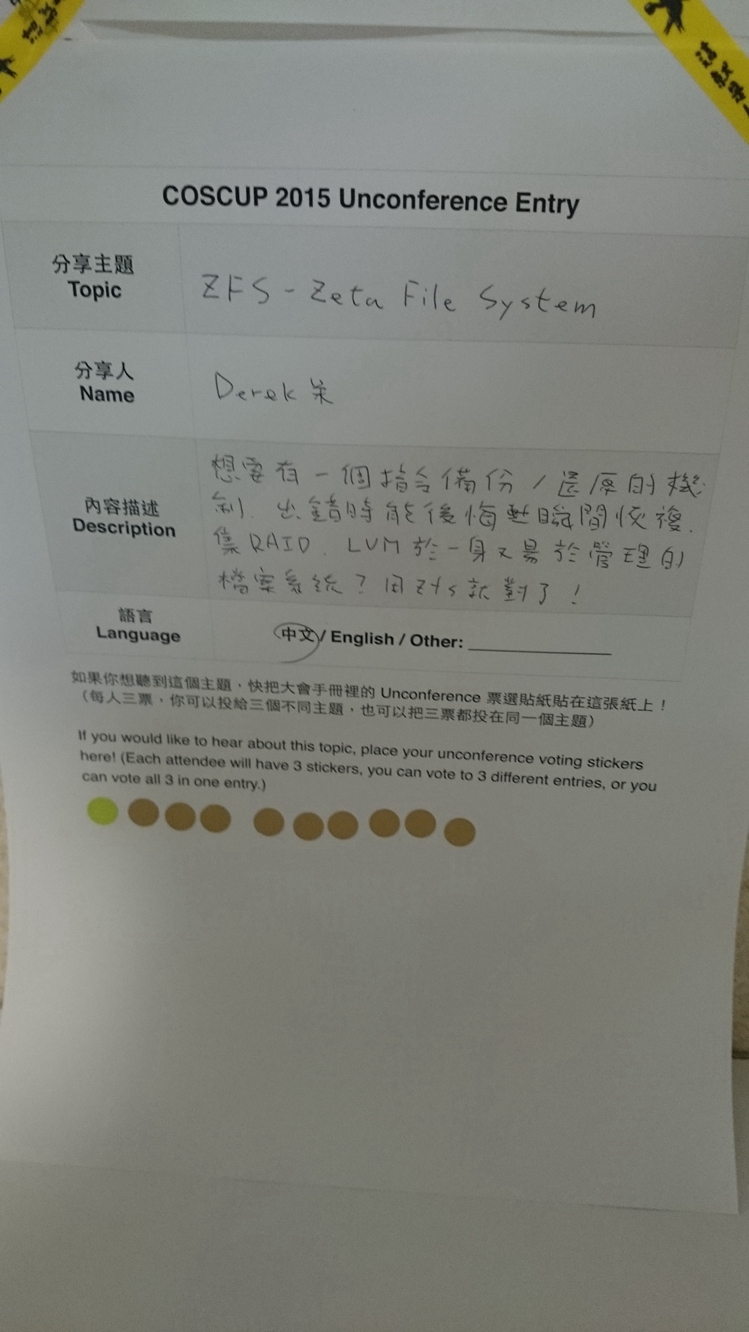 COSCUP 2015 Unconference Entry
分享主題
Topic
ZFS - Zeta File System
分享人
Name
Derek 朱
內容描述
Description
想要有一個指令備份/還原的機
制、出錯時能後悔並瞬間恢複、
集RAID、LVM於一身又易於管理的
檔案系統?用Zfs就對了!
語言
Language
中文 / English / Other:
如果你想聽到這個主題,快把大會手冊裡的 Unconference 票選貼紙貼在這張紙上!
(每人三票,你可以投給三個不同主題,也可以把三票都投在同一個主題)
If you would like to hear about this topic, place your unconference voting stickers
here! (Each attendee will have 3 stickers, you can vote to 3 different entries, or you
can vote all 3 in one entry.)